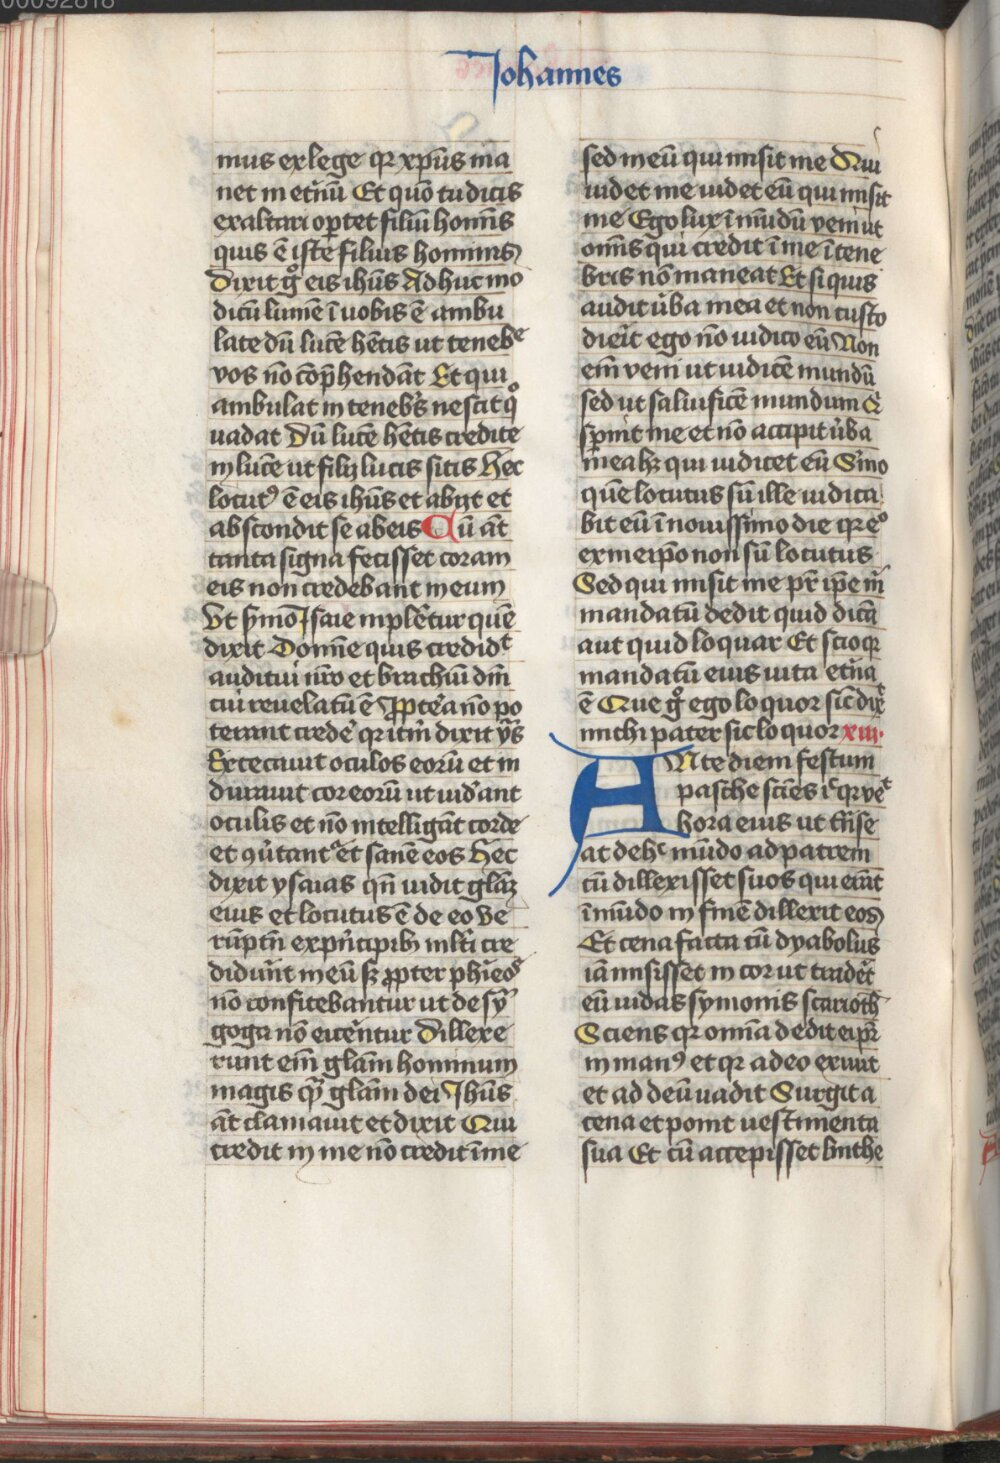 00092818
Johannes
mus ex lege qr xpūs ma
net in etnū Et quō tu dicis
exaltari optet filiū homīs
quis ē iste filius hominis
Dixit gͦ eis ihūs Adhuc mo
dicū lumē ī uobis ē ambu
late dū lucē hētis ut tenebᵉ
vos nō cōphendāt Et qui
ambulat in tenebs nescit qͦ
uadat Dū lucē hētis credite
in lucē ut filij lucis sitis Hec
locutꝰ ē eis ihūs et abijt et
abscondit se ab eis Cū āt
tanta signa fecisset coram
eis non credebant in eum
Vt smō Isaie inpletur quē
dixit Domīe quis credidᵗ
auditui nr̄o et brachiū dm̄
cui reuelatū ē ꝓpterea nō po
terant crede qr itm̄ dixit ys
Excecauit oculos eorū et in
durauit cor eorū ut nō uidant
oculis et nō intelligāt corde
et ꝯutant et sanem eos Hec
dixit ysaias qn̄ uidit glaz
eius et locutus ē de eo Ve
rūptn̄ ex pncipibꝫ mlti cre
didunt in eū sꝫ ꝓpter phieos
nō confitebantur ut de sy
goga nō eicentur Dillexe
runt em̄ glam̄ hominum
magis qͣ glam̄ dei Ihūs
āt clamauit et dixit Qui
credit in me nō credit ī me
sed in eū qui misit me Qui
uidet me uidet eū qui misit
me Ego lux ī mūdū veni ut
omīs qui credit ī me ī tene
bris nō maneat Et si quis
audit uba mea et non custo
dierit ego nō iudico eū Non
em̄ veni ut iudicē mundū
sed ut saluificē mundum Qͥ
spnit me et nō accipit uba
mea hꝫ qui iudicet eū Smo
quē locutus sū ille iudica
bit eū ī nouissimo die qr eͦ
ex meipō non sū locutus
Sed qui misit me pr̄ ipē m̄
mandatū dedit quid dicā
aut quid loquar Et scio qr
mandatū eius uita etna
ē Que gͦ ego loquor sic dix
michi pater sic loquor xiii
ANte diem festum
pasche sciēs iᶜ qr veᵗ
hora eius ut tn̄se
at de hᶜ mūdo ad patrem
cū dillexisset suos qui erāt
ī mūdo in finē dillexit eos
Et cena facta cū dyabolus
iā misisset in cor ut tradet
eū iudas symonis scarioth
Sciens qr omīa dedit ei pr̄
in manꝰ et qr a deo exiuit
et ad deū uadit Surgit a
cena et ponit uestimenta
sua Et cū accepisset linthe